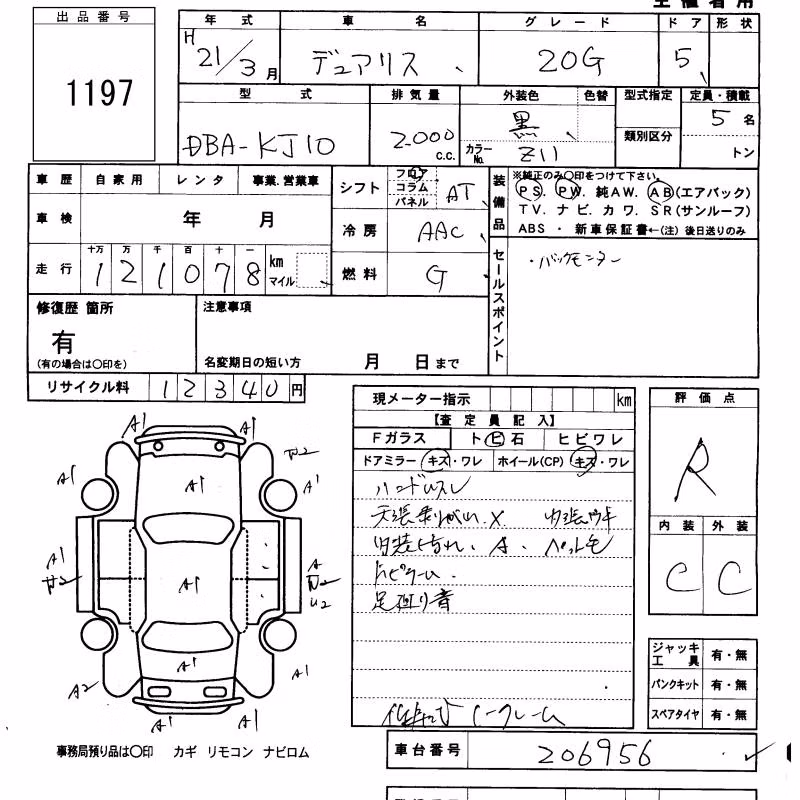 出品番号
1197
年式 車名 グレード ドア 形状
H 21/3月 デュアリス 20G 5
型式 排気量 外装色 色替 型式指定 定員・積載
DBA-KJ10 2,000 c.c. 黒 類別区分 5名
カラーNo. Z11 トン
車歴 自家用 レンタ 事業.営業車
シフト フロア コラム パネル AT
装備品 ※純正のみ○印をつけて下さい。
PS. PW. 純AW. AB(エアバック)
TV. ナビ. カワ. SR(サンルーフ)
ABS ・ 新車保証書←(注) 後日送りのみ
車検 年 月
冷房 AAC
走行 十万 万 千 百 十 一
121078 km マイル
燃料 G
セールスポイント
・バックモニター
修復歴 箇所
有
(有の場合は○印を)
注意事項
名変期日の短い方 月 日まで
リサイクル料 12340円
現メーター指示 km
【査定員記入】
Fガラス ト ヒ 石 ヒビワレ
ドアミラー キズ・ワレ ホイール(CP) キズ・ワレ
ハンドルスレ
天張剥がれ.X
内装
ペットモ
足廻り音
評価点
R
内装 外装
C C
ジャッキ工具 有・無
パンクキット 有・無
スペアタイヤ 有・無
A1 A1
A1 A1 A1
A1 A
A1 U2
A1
A2 A1
A1 A1
事務局預り品は○印 カギ リモコン ナビロム
車台番号 206956